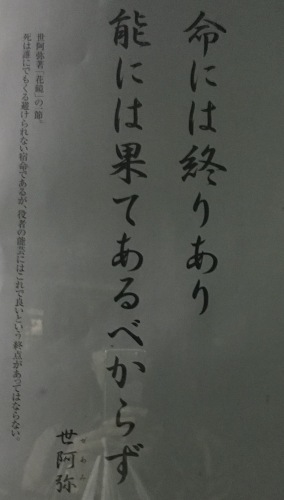 命には終りあり
能には果てあるべからず
世阿弥
ぜあみ
世阿弥著「花鏡」の一節。
死は誰にでもくる避けられない宿命であるが、役者の能芸にはこれで良いという終点があってはならない。